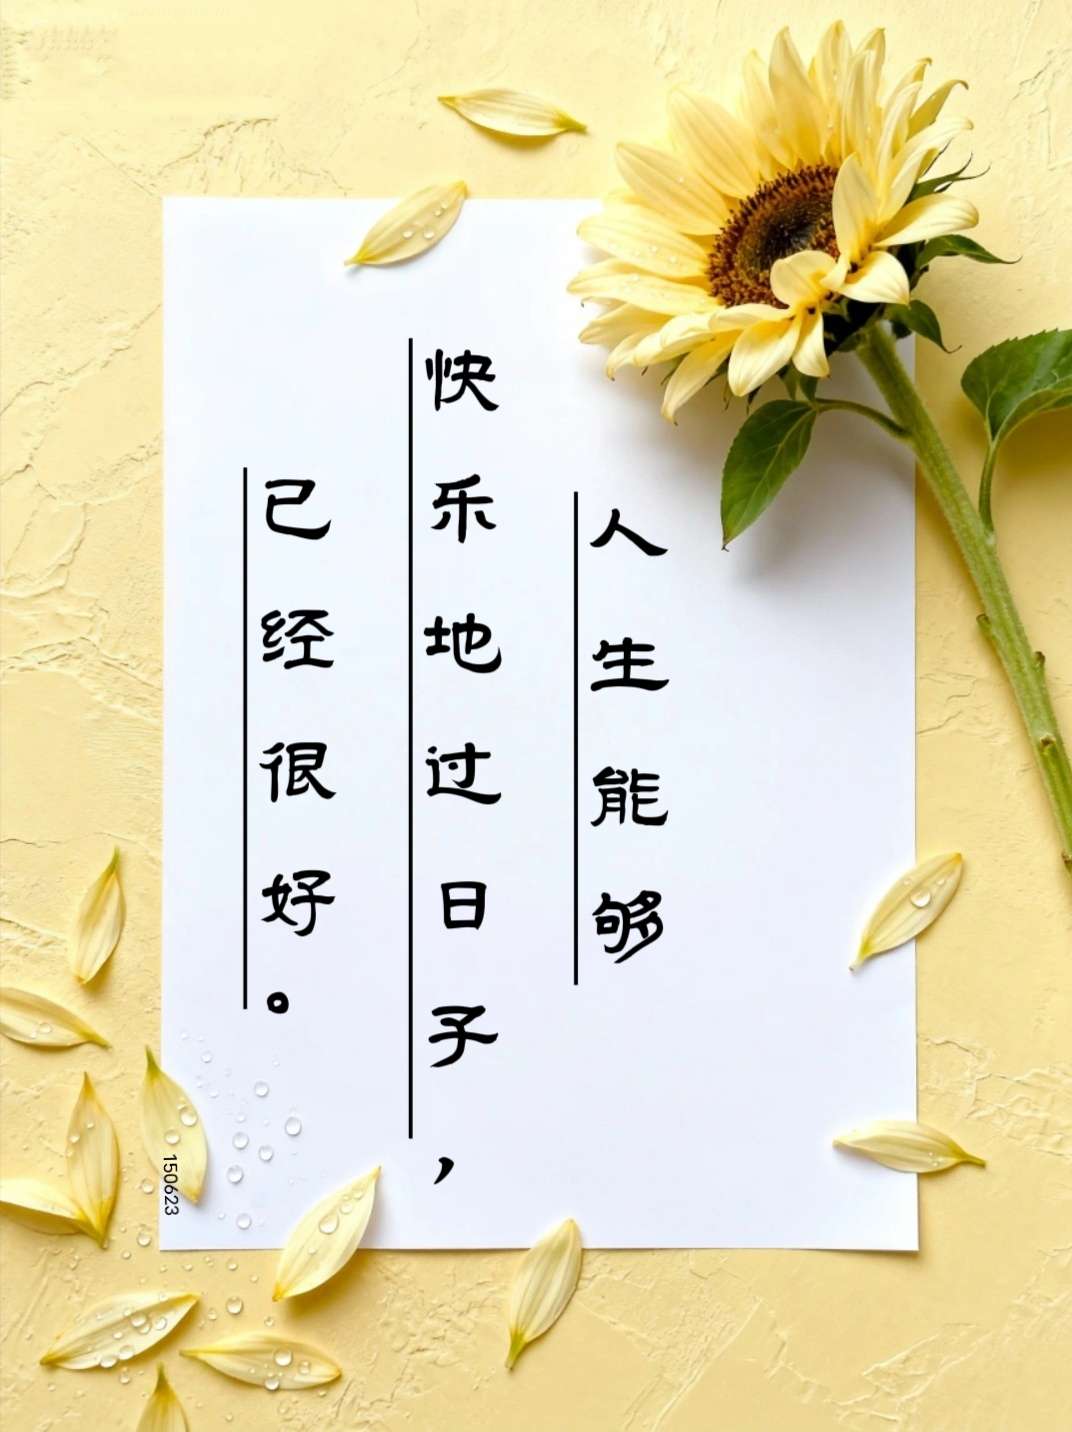 人生能够
快乐地过日子，
已经很好。
150623